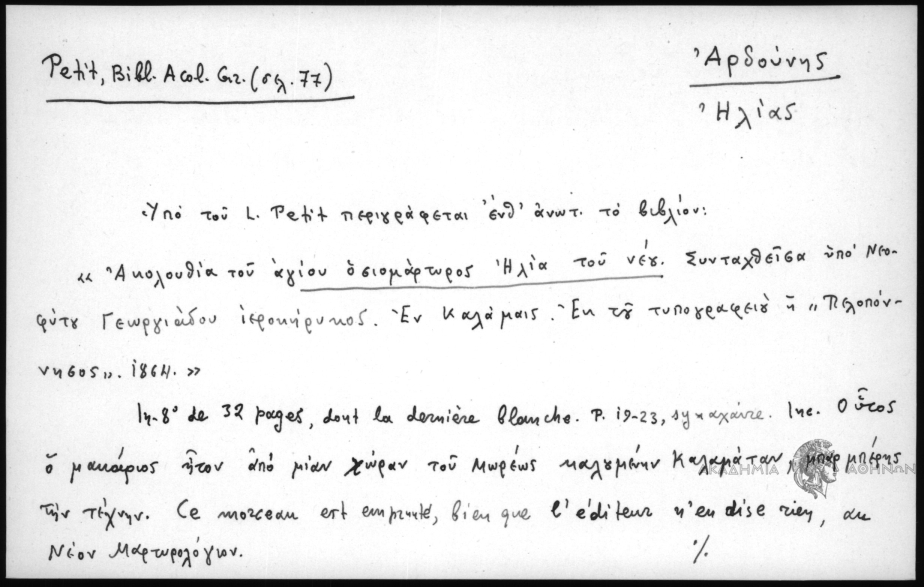 Petit, Bibl. Acol. Gr. (σελ. 77)
Ἀρδούνης
Ἠλίας
Ὑπό τοῦ L. Petit περιγράφεται ἐνθ' ἀνωτ. τό βιβλίον:
« Ἀκολουθία τοῦ ἁγίου ὁσιομάρτυρος Ἠλία τοῦ νέου. Συνταχθεῖσα ὑπό Νεο-
φύτου Γεωργιάδου ἱεροκήρυκος. Ἐν Καλάμαις. Ἐκ τοῦ τυπογραφείου ἡ „Πελοπόν-
νησος„. 1864. »
In-8° de 32 pages, dont la dernière blanche. P. 19-23, synaxaire. Inc. Οὗτος
ὁ μακάριος ἦτον ἀπό μίαν χώραν τοῦ Μωρέως καλουμένην Καλαμάταν, μπαρμπέρης
τήν τέχνην. Ce morceau est emprunté, bien que l'éditeur n'en dise rien, au
Νέον Μαρτυρολόγιον.
./.
ΑΚΑΔΗΜΙΑ ΑΘΗΝΩΝ